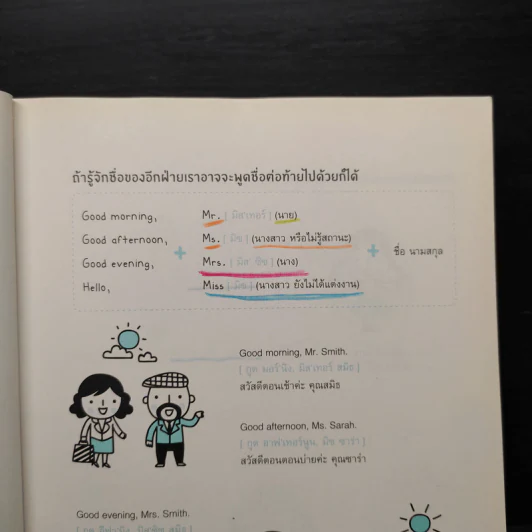 ถ้ารู้จักชื่อของอีกฝ่ายเราอาจจะพูดชื่อต่อท้ายไปด้วยก็ได้
Good morning, Mr. [ มิสเทอร์ ] (นาย)
Good afternoon, + Ms. [ มิซ ] (นางสาว หรือไม่รู้สถานะ) + ชื่อ นามสกุล
Good evening, Mrs. [ มิส ซิซ ] (นาง)
Hello, Miss [ มิส ] (นางสาว ยังไม่ได้แต่งงาน)
Good morning, Mr. Smith.
[ กูด มอร์นิง, มิสเทอร์ สมิธ ]
สวัสดีตอนเช้าค่ะ คุณสมิธ
Good afternoon, Ms. Sarah.
[ กูด อาฟเทอร์นูน, มิซ ซาร่า ]
สวัสดีตอนตอนบ่ายค่ะ คุณซาร่า
Good evening, Mrs. Smith.